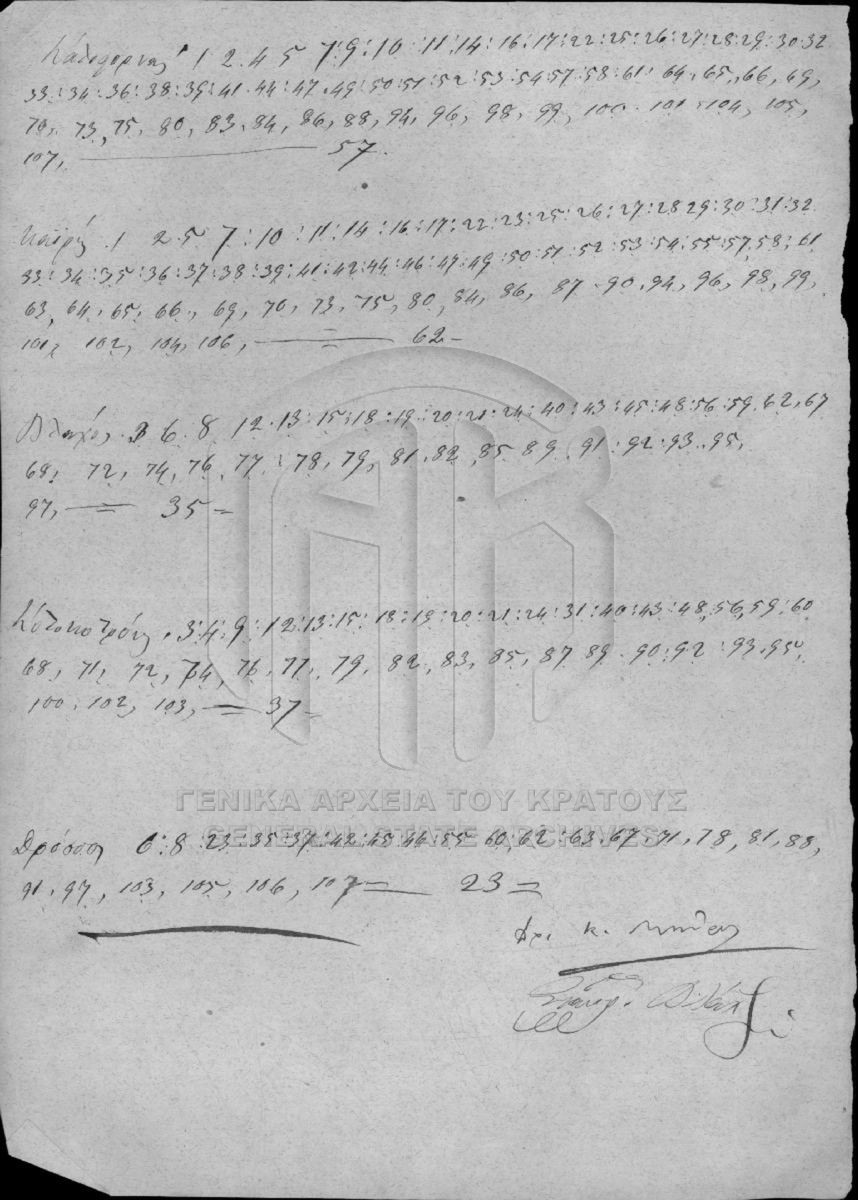 1 2 4 5 7 9 : 10 : 11 : 14 : 16 : 17 : 22 : 25 : 26 : 27 : 28 29 : 30 32
33 : 34 : 36 : 38 : 39 : 41 . 44 : 47 . 49 : 50 51 : 52 : 53 : 54 57 : 58 : 61 : 64 , 65 , 66 , 69 ,
70 , 73 , 75 , 80 , 83 , 84 , 86 , 88 , 94 , 96 , 98 , 99 , 100 . 101 . 104 , 105 ,
107 , — 57
Καϊρής 1 2 5 7 : 10 : 11 : 14 : 16 : 17 : 22 : 23 : 25 : 26 : 27 : 28 29 : 30 : 31 : 32
33 : 34 : 35 : 36 : 37 : 38 : 39 : 41 : 42 : 44 : 46 : 47 : 49 : 50 : 51 : 52 : 53 : 54 : 55 : 57 , 58 , 61
63 , 64 , 65 , 66 , 69 , 70 , 73 , 75 , 80 , 84 , 86 , 87 . 90 , 94 , 96 , 98 , 99 ,
101 , 102 , 104 , 106 , — 62 —
Βλαχος 3 6 8 12 . 13 : 15 : 18 : 19 : 20 : 21 : 24 : 40 : 43 : 45 : 48 : 56 . 59 . 62 , 67
68 , 72 , 74 , 76 , 77 : 78 , 79 , 81 . 82 , 85 89 . 91 : 92 : 93 . 95 ,
97 , — 35 =
3 : 4 : 9 : 12 : 13 : 15 : 18 : 19 : 20 : 21 : 24 : 31 : 40 : 43 : 48 , 56 , 59 : 60
68 , 71 , 72 , 74 , 76 , 77 , 79 , 82 , 83 , 85 , 87 89 . 90 : 92 : 93 . 95 ,
100 , 102 , 103 , — 37 =
ΓΕΝΙΚΑ ΑΡΧΕΙΑ ΤΟΥ ΚΡΑΤΟΥΣ
GENERAL STATE ARCHIVES
Δρόσος 6 : 8 : 23 : 35 : 37 : 42 : 45 : 46 : 55 : 60 , 62 : 63 , 67 , 71 , 78 , 81 , 88 ,
91 , 97 , 103 , 105 , 106 , 107 = — 23 =
κ.